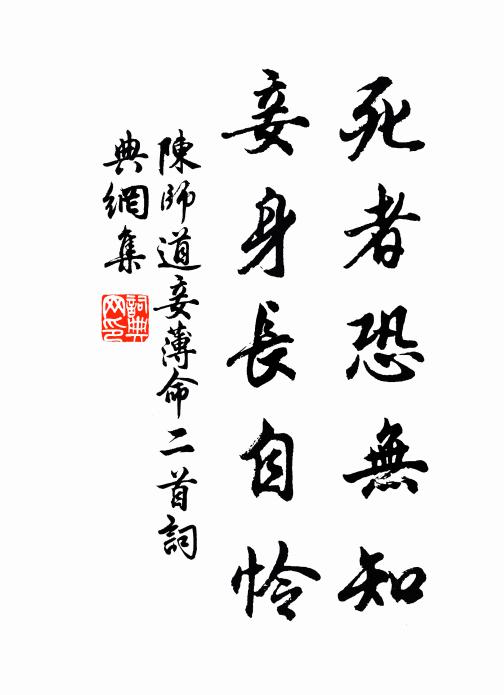 死者恐無知
妾身長自怜
陳師道妾薄命二首詞
典網集
詞典网印